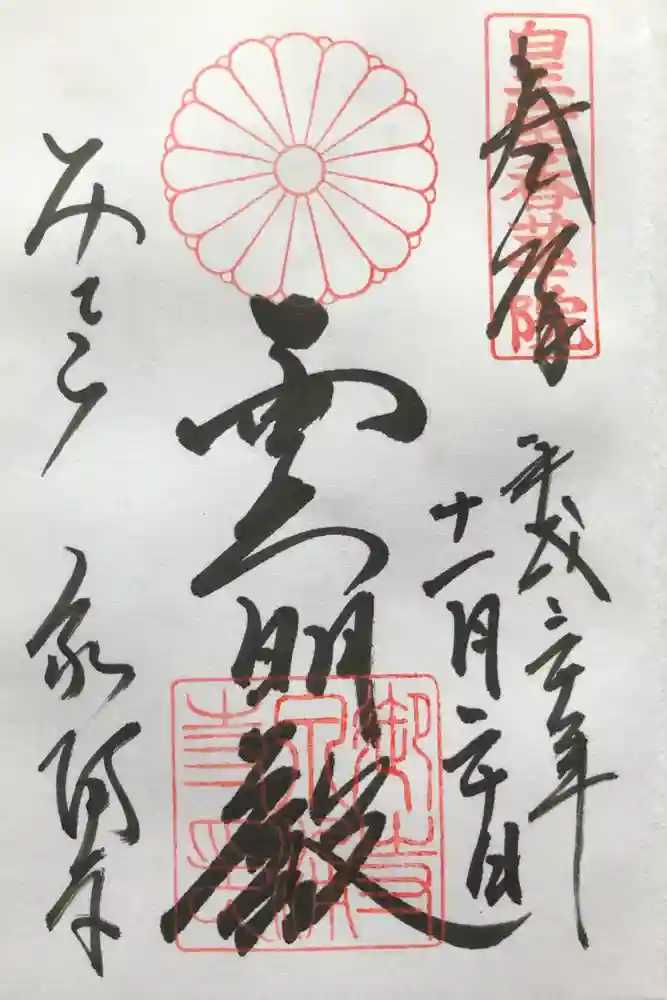 皇室香華院
奉拝
平成三十年
十一月二十日
霊明殿
御寺泉涌寺印
みてら
泉涌寺